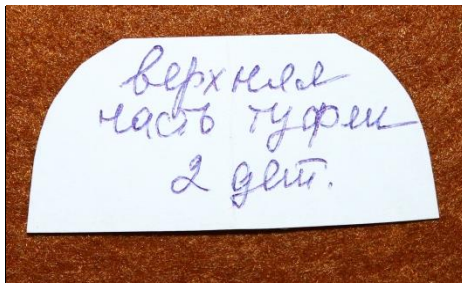 верхняя
часть туфли
2 дет.